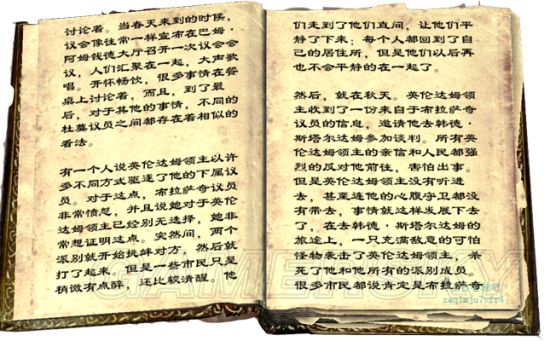 讨论着。当春天来到的时候，
议会像往常一样宣布在巴姆·
阿姆钱德大厅召开一次议会会
议，人们汇聚在一起，大声歌
唱。开怀畅饮，很多事情在餐
桌上讨论着，而且，到了最
后，对于其他的事情，不同的
杜莫议员之间都存在着相似的
看法。
有一个人说英伦达姆领主以许
多不同方式驱逐了他的下属议
员。对于这点，布拉萨奇议员
非常愤怒，并且说她对于英伦
达姆领主已经别无选择，她非
常想证明这点。突然间，两个
派别就开始挑衅对方，然后就
打了起来，但是一些市民只是
稍微有点醉，还比较清醒。他
们走到了他们直间，让他们平
静了下来；每个人都回到了自
己的居住所，但是他们以后再
也不会平静的在一起了。
然后，就在秋天。英伦达姆领
主收到了一份来自于布拉萨奇
议员的信息，邀请他去韩德·
斯塔尔达姆参加谈判。所有英
伦达姆领主的亲信和人民都强
烈的反对他前往，害怕出事。
但是英伦达姆领主没有听进
去，甚至连他的心腹守卫都没
有带去，事情就这样发展下去
了，在去韩德·斯塔尔达姆的
旅途上，一只充满敌意的可怕
怪物袭击了英伦达姆领主，杀
死了他和他所有的派别成员。
很多市民都说肯定是布拉萨奇
GAMERSKY
zaq1mju7vfr4